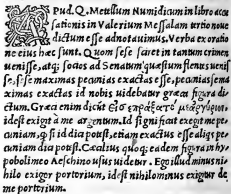 APud. Q. Metellum Numidicum in libro accu
sationis in Valerium Messalam tertio noue
dictum esse adnotauimus. Verba ex oratio
ne eius hæc sunt. Quom sese sciret in tantum crimen
uenisse, atq; socios ad Senatum quæstum flentes uenis
se, sese maximas pecunias exactas esse, pecunias se ma
ximas exactas id nobis uidebatur græca figura di
ctum. Græci enim dicunt
idest exigit à me argentum. Id significat exegit me pe
cuniam, q si id dici potest, etiam exactus esse aliqs pe
cuniam dici potest. Cæcilius quoq; eadem figura in hy
pobolimeo Aeschino usus uidetur. Ego illud minus ni
hilo exigor portorium, idest nihilominus exigitur de
me portorium.